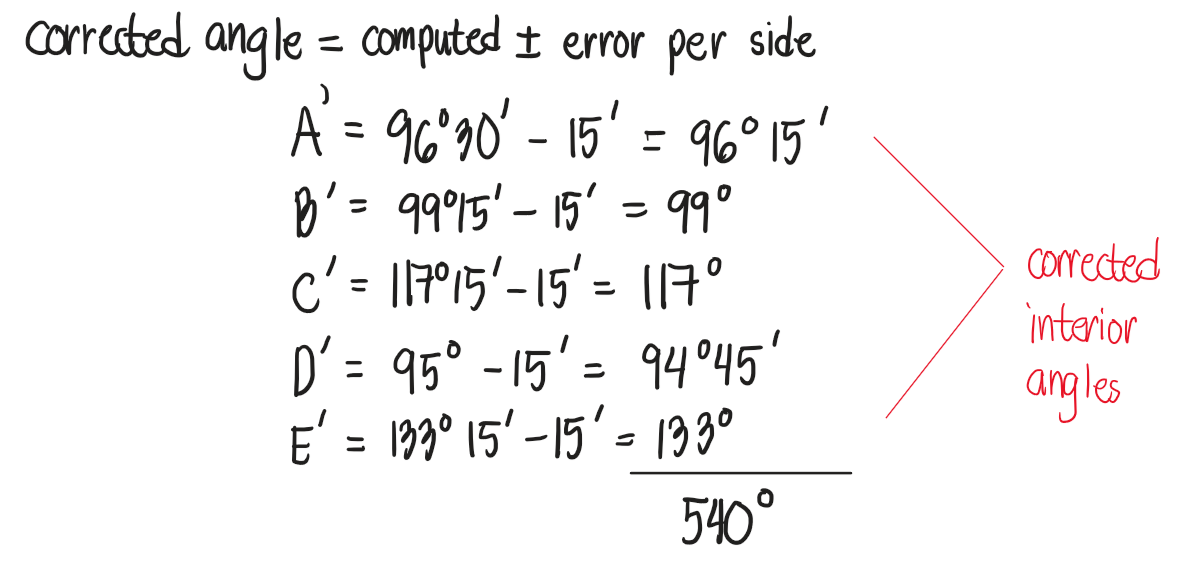 corrected angle = computed ± error per side
A' = 96°30' - 15' = 96°15'
B' = 99°15' - 15' = 99°
C' = 117°15' - 15' = 117°
D' = 95° - 15' = 94°45'
E' = 133°15' - 15' = 133°
540°
corrected
interior
angles